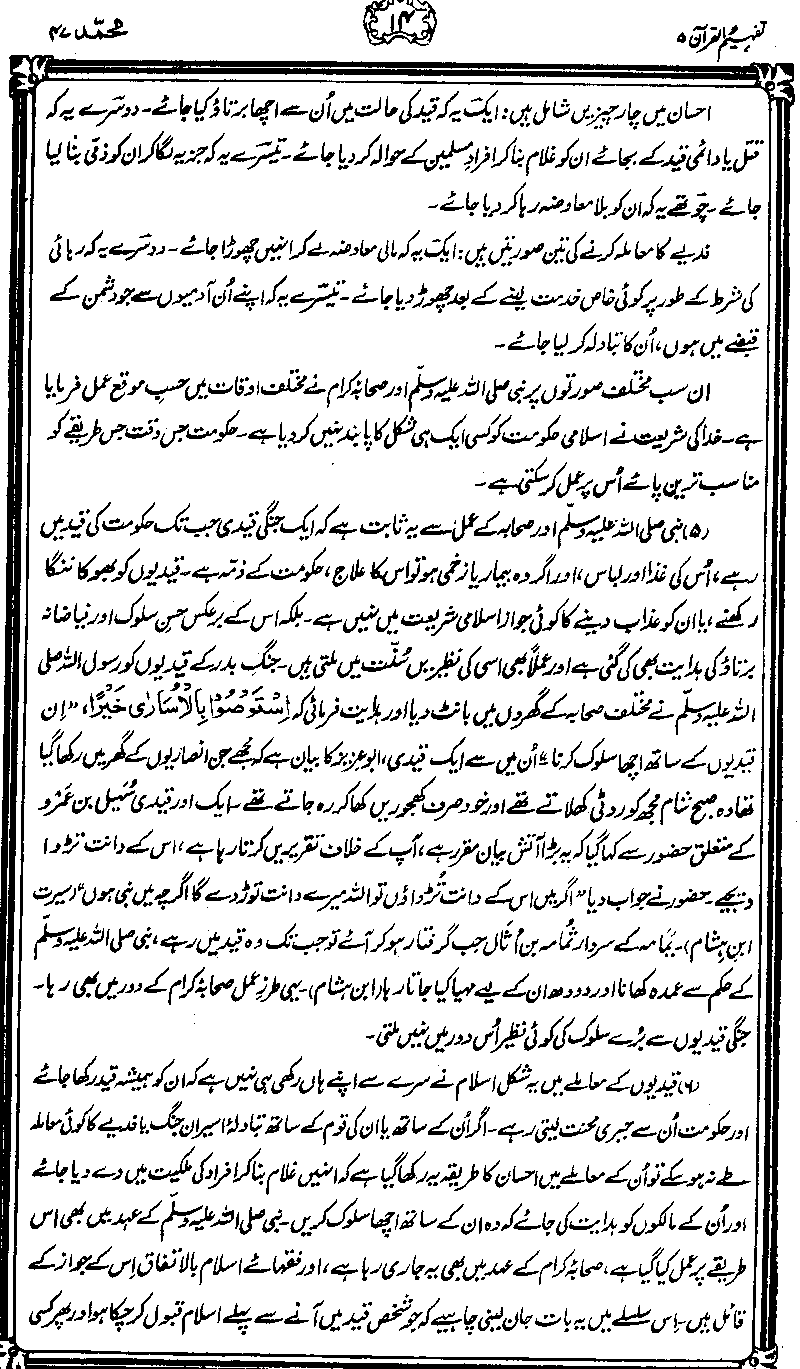 تفہیم القرآن ۵
۱۴
محمّد ۴۷
احسان میں چار چیزیں شامل ہیں: ایک یہ کہ قید کی حالت میں اُن سے اچھا برتاؤ کیا جائے۔ دوسرے یہ کہ
قتل یا دائمی قید کے بجائے ان کو غلام بنا کر افرادِ مسلمین کے حوالہ کر دیا جائے۔ تیسرے یہ کہ جزیہ لگا کر ان کو ذمّی بنا لیا
جائے۔ چوتھے یہ کہ ان کو بلا معاوضہ رہا کر دیا جائے۔
فدیے کا معاملہ کرنے کی تین صورتیں ہیں: ایک یہ کہ مالی معاوضہ لے کر انہیں چھوڑا جائے۔ دوسرے یہ کہ رہائی
کی شرط کے طور پر کوئی خاص خدمت لینے کے بعد چھوڑ دیا جائے۔ تیسرے یہ کہ اپنے اُن آدمیوں سے جو دشمن کے
قبضے میں ہوں، اُن کا تبادلہ کر لیا جائے۔
ان سب مختلف صورتوں پر نبی صلی اللہ علیہ وسلّم اور صحابۂ کرام نے مختلف اوقات میں حسبِ موقع عمل فرمایا
ہے۔ خدا کی شریعت نے اسلامی حکومت کو کسی ایک ہی شکل کا پابند نہیں کر دیا ہے۔ حکومت جس وقت جس طریقے کو
مناسب ترین پائے اُس پر عمل کر سکتی ہے۔
(۵) نبی صلی اللہ علیہ وسلّم اور صحابہ کے عمل سے یہ ثابت ہے کہ ایک جنگی قیدی جب تک حکومت کی قید میں
رہے، اُس کی غذا اور لباس، اور اگر وہ بیمار یا زخمی ہو تو اس کا علاج، حکومت کے ذمّہ ہے۔ قیدیوں کو بھوکا ننگا
رکھنے، یا ان کو عذاب دینے کا کوئی جواز اسلامی شریعت میں نہیں ہے۔ بلکہ اس کے برعکس حسنِ سلوک اور فیاضانہ
برتاؤ کی ہدایت بھی کی گئی ہے اور عملاً بھی اسی کی نظیریں سُنّت میں ملتی ہیں۔ جنگِ بدر کے قیدیوں کو رسول اللہ صلی
اللہ علیہ وسلّم نے مختلف صحابہ کے گھروں میں بانٹ دیا اور ہدایت فرمائی کہ اِسْتَوْصُوْا بِالْاُسَارٰی خَیْرًا، "اِن
قیدیوں کے ساتھ اچھا سلوک کرنا"۔ اُن میں سے ایک قیدی، ابو عزیز کا بیان ہے کہ مجھے جن انصاریوں کے گھر میں رکھا گیا
تھا وہ صبح شام مجھ کو روٹی کھلاتے تھے اور خود صرف کھجوریں کھا کر رہ جاتے تھے۔ ایک اور قیدی سُہَیل بن عَمْرو
کے متعلق حضور سے کہا گیا کہ یہ بڑا آتش بیان مقرر ہے، آپ کے خلاف تقریریں کرتا رہا ہے، اس کے دانت تڑوا
دیجیے۔ حضور نے جواب دیا "اگر میں اس کے دانت تُڑواؤں تو اللہ میرے دانت توڑ دے گا اگرچہ میں نبی ہوں" (سیرت
ابن ہشام)۔ یمامہ کے سردار ثُمامہ بن اُثال جب گرفتار ہو کر آئے تو جب تک وہ قید میں رہے، نبی صلی اللہ علیہ وسلّم
کے حکم سے عمدہ کھانا اور دودھ ان کے لیے مہیا کیا جاتا رہا (ابن ہشام)۔ یہی طرزِ عمل صحابۂ کرام کے دور میں بھی رہا۔
جنگی قیدیوں سے بُرے سلوک کی کوئی نظیر اُس دور میں نہیں ملتی۔
(۶) قیدیوں کے معاملے میں یہ شکل اسلام نے سرے سے اپنے ہاں رکھی ہی نہیں ہے کہ ان کو ہمیشہ قید رکھا جائے
اور حکومت اُن سے جبری محنت لیتی رہے۔ اگر اُن کے ساتھ یا ان کی قوم کے ساتھ تبادلۂ اسیرانِ جنگ یا فدیے کا کوئی معاملہ
طے نہ ہو سکے تو اُن کے معاملے میں احسان کا طریقہ یہ رکھا گیا ہے کہ انہیں غلام بنا کر افراد کی ملکیت میں دے دیا جائے
اور اُن کے مالکوں کو ہدایت کی جائے کہ وہ ان کے ساتھ اچھا سلوک کریں۔ نبی صلی اللہ علیہ وسلّم کے عہد میں بھی اس
طریقے پر عمل کیا گیا ہے، صحابۂ کرام کے عہد میں بھی یہ جاری رہا ہے، اور فقہائے اسلام بالاتفاق اِس کے جواز کے
قائل ہیں۔ اِس سلسلے میں یہ بات جان لینی چاہیے کہ جو شخص قید میں آنے سے پہلے اسلام قبول کر چکا ہو اور پھر کسی